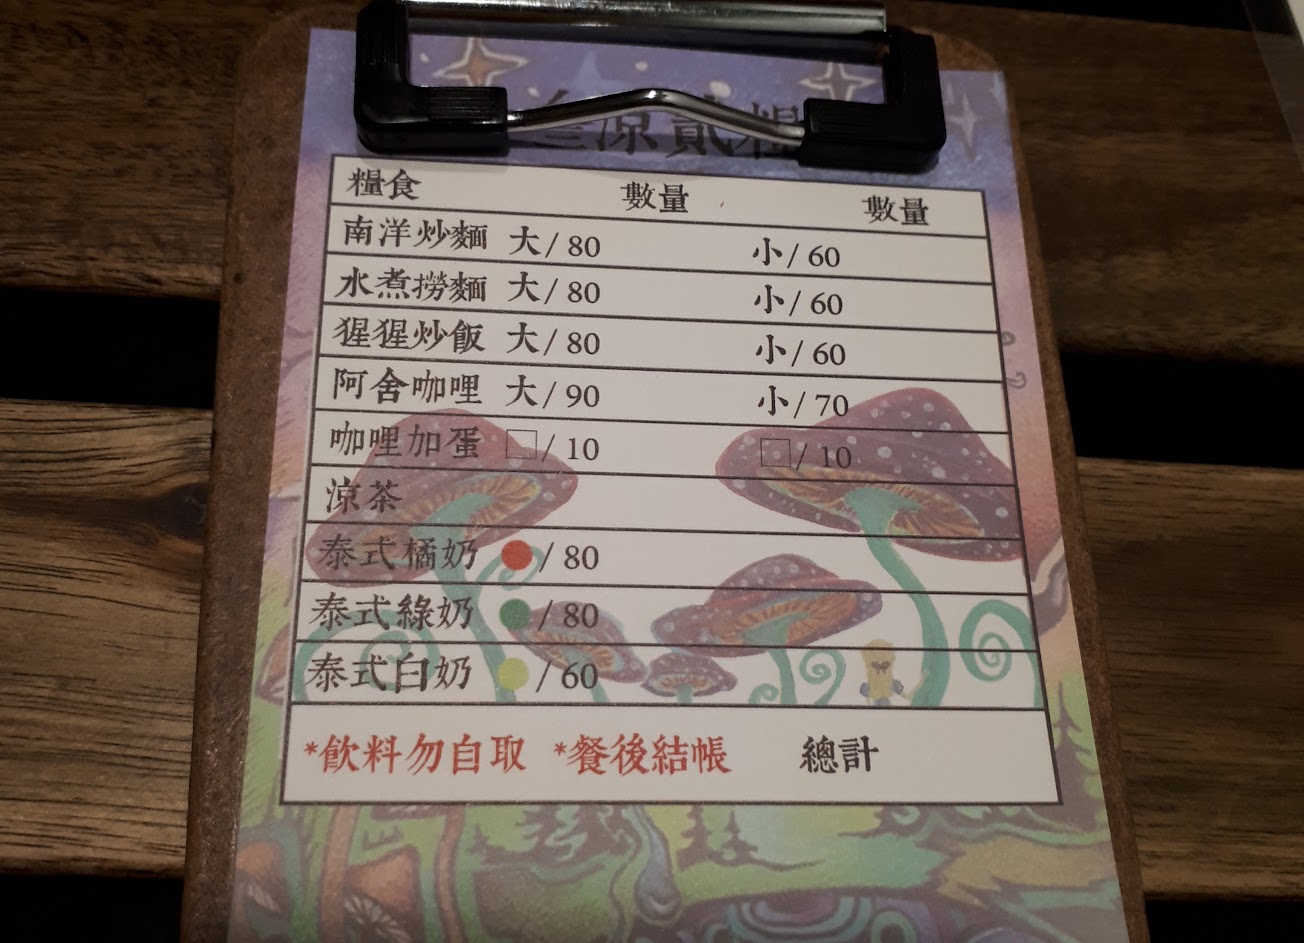 叁涼貳糧
糧食 數量 數量
南洋炒麵 大/ 80 小/ 60
水煮撈麵 大/ 80 小/ 60
猩猩炒飯 大/ 80 小/ 60
阿舍咖哩 大/ 90 小/ 70
咖哩加蛋 □/ 10 □/ 10
涼茶
泰式橘奶 / 80
泰式綠奶 / 80
泰式白奶 / 60
*飲料勿自取 *餐後結帳 總計